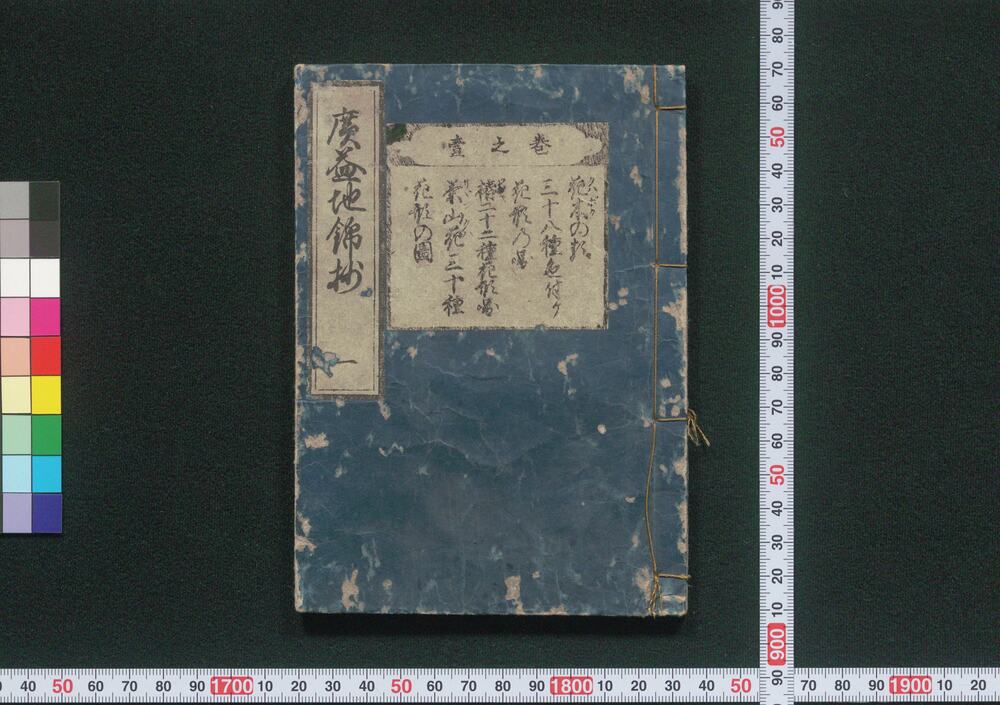 廣益地錦抄
巻之壹
花木の類
三十八種色付ケ
花形乃圖
二十二種花形圖
葉山花三十種
花形の圖
90
80
70
60
50
40
30
20
10
1000
90
80
70
60
50
40
30
20
10
900
90
40 50 60 70 80 90 1700 10 20 30 40 50 60 70 80 90 1800 10 20 30 40 50 70 80 90 1900 10 20